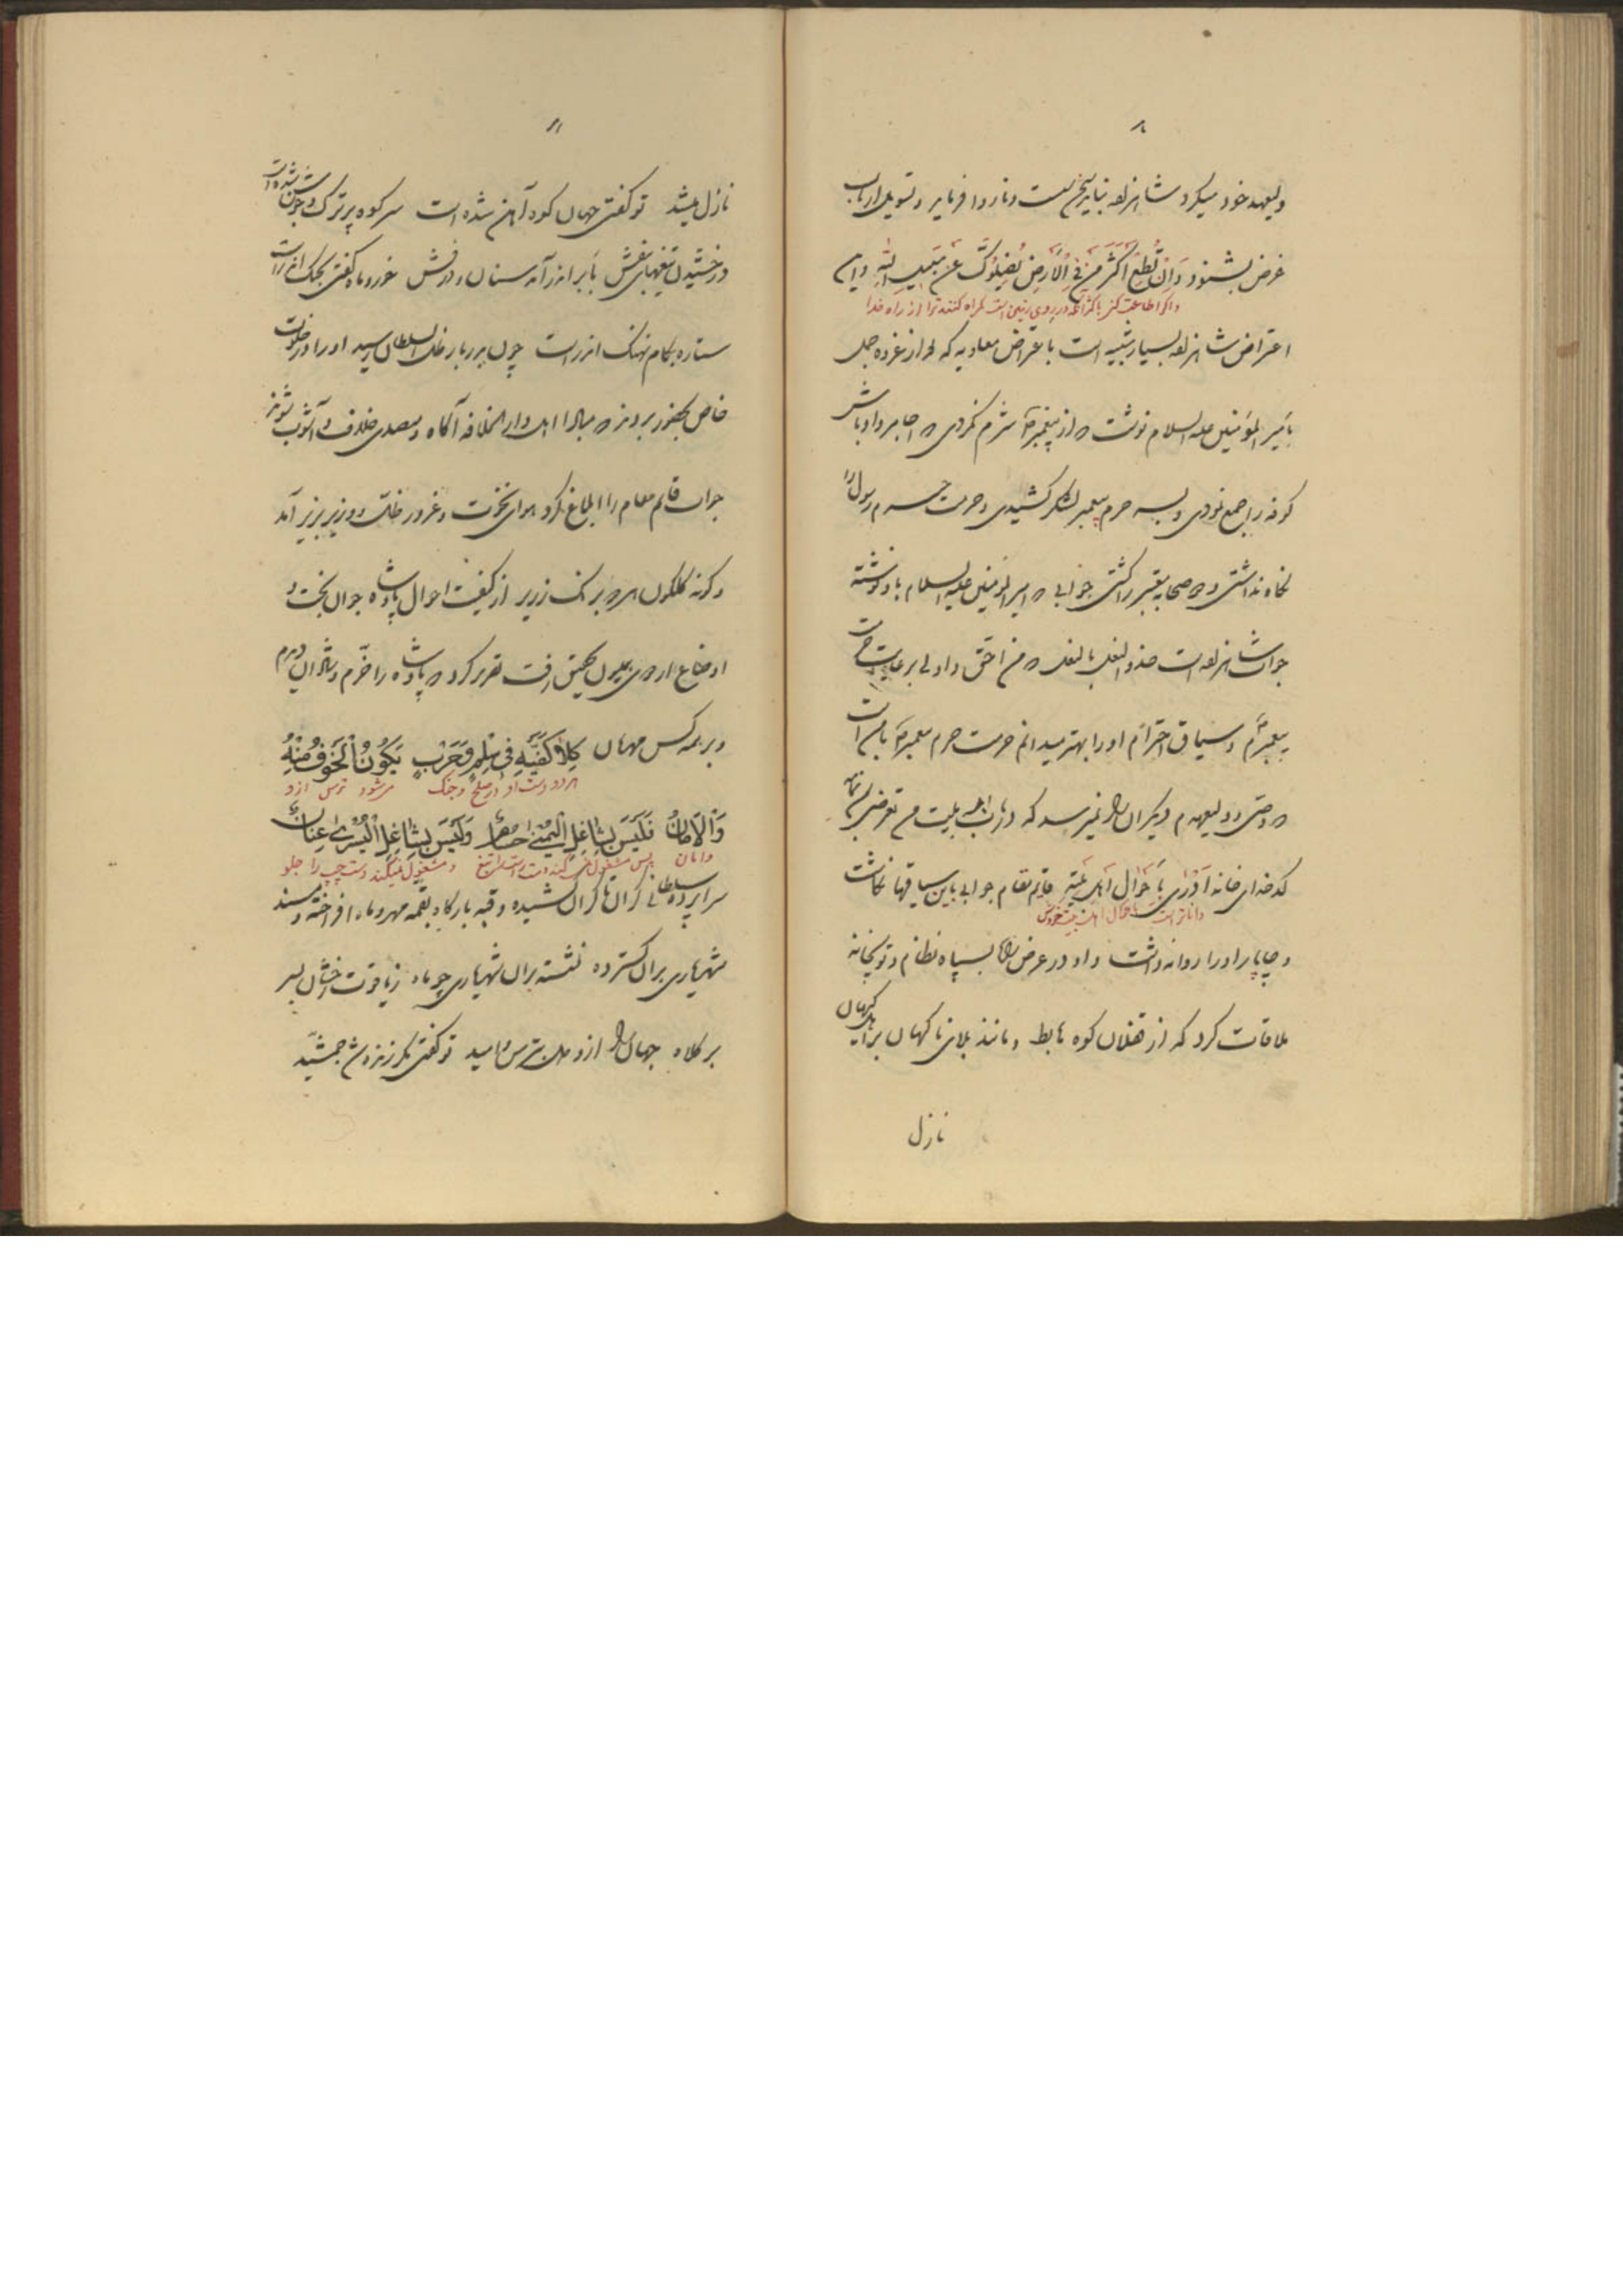 ولیعهد خود میکرد شاهزاده نبایستی ناروا فرماید و تسویل ارباب
غرض بشنود وَاِنْ تُطِعْ اَکْثَرَ مَنْ فِی الْاَرْضِ یُضِلُّوکَ عَنْ سَبِیلِ اللهِ و این
و اگر اطاعت کنی باکثر آنکه در روی زمین است گمراه کنند ترا از راه خدا
اعتراض شاهزاده بسیار شبیه است باعتراض معاویه که بعد از غزوه جمل
بامیر المؤمنین علیه السلام نوشت که از پیغمبر شرم نکردی که اجامر و اوباش
کوفه را جمع نمودی و بسر حرم پیغمبر لشکر کشیدی و حرمت حرم رسول را
نگاه نداشتی و صحابه پیغمبر را کشتی جوابی که امیر المؤمنین علیه السلام باو نوشته
جواب شاهزاده است حذو النعل بالنعل که من احق و اولی برعایت حرمت
پیغمبرم و سیاق احترام او را بهتر میدانم حرمت حرم پیغمبر با من است
دیگران را نمیرسد که در باب اهل بیت من تعرضی
کدخدای خانه اَدْرٰی بِاَحْوالِ اَهْلِ بَیْتِهِ قایم مقام جوابی باین سیاقها نگاشت
داناتر است باحوال اهل بیت خودش
و چاپار او را روانه داشت و او در عرض راه بسپاه نظام و توپخانه
ملاقات کرد که از قفلان کوه هابط و مانند بلای ناگهان بر اهل کیهان
نازل
نازل میشد تو گفتی جهان کوه آهن شده است سر کوه پر ترک و جوشن شده است
درخشیدن تیغهای بنفش بابر اندر آمد سنان و درفش خور و ماه گفتی بجنگ اندر است
ستاره بکام نهنگ اندر است چون بدربار ظل السلطان رسید او را در خلوت
خاص بحضور بردند که مبادا اهل دار الخلافه آگاه و مصدر خلاف و آشوب شوند
جواب قایم مقام را ابلاغ کرد هوای نخوت و غرور ظل زیر بزیر آمد
و گونه گلگون برنگ زریر از کیفیت احوال پادشاه جوان بخت و
اوضاع اردوی همایون تحقیق رفت تقریر کرد که پادشاه را خرم و شادان دیدم
و بر همه کس مهربان کِلا کَفَّیْهِ فِی سِلْمٍ وَحَرْبٍ یَکُونُ الْخَوْفُ مِنْهُ
هر دو دست او در صلح و جنگ میشود ترس از او
وَالْاَمانُ فَلَیْسَ بِشاغِلِ الْیُمْنیٰ حُسامٌ وَلَیْسَ بِشاغِلِ الْیُسْریٰ عِنانٌ
و امان پس مشغول نمیکند دست راست را تیغ و مشغول نمیکند دست چپ را جلو
سراپرده سلطانی کران تا کران کشیده و قبه بارگاه بقمه مهر و ماه افراخته و مسند
شهریاری بر آن گسترده نشسته بر آن شهریاری چو ماه ز یاقوت رخشان بسر
بر کلاه جهان را ازو دل بترس و امید تو گفتی مگر زنده شد جمشید